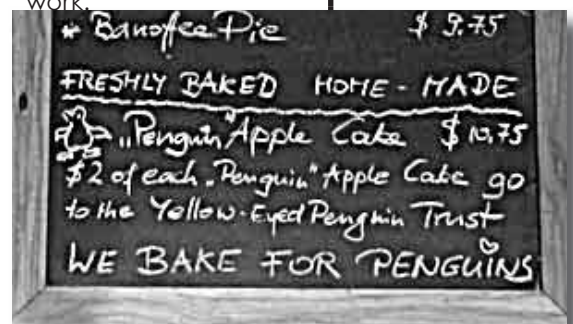 work.
* Banoffee Pie $ 9.75
FRESHLY BAKED HOME-MADE
„Penguin" Apple Cake $ 10.75
$2 of each „Penguin" Apple Cake go
to the Yellow-Eyed Penguin Trust
WE BAKE FOR PENGUINS